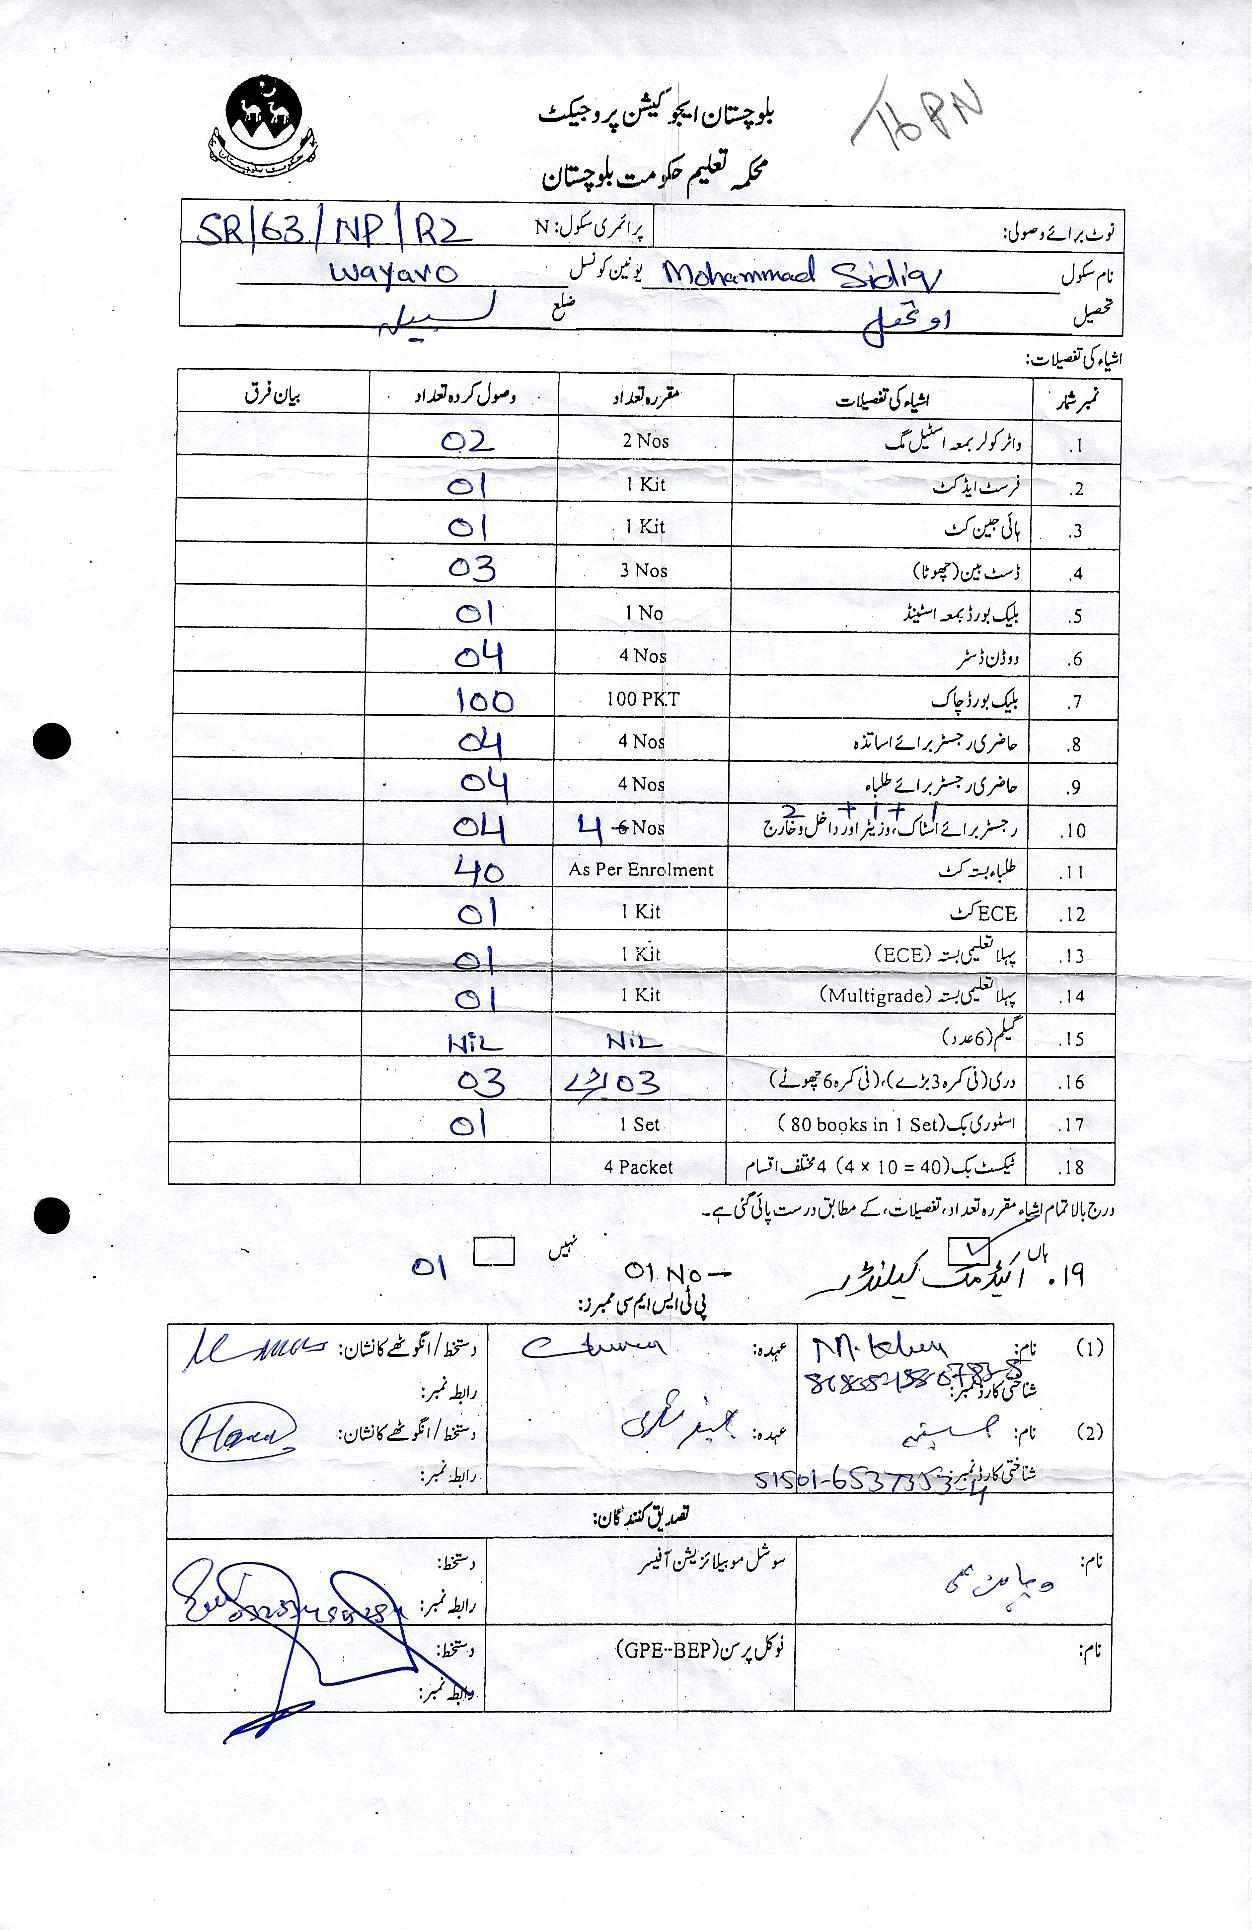 16 PN
بلوچستان ایجوکیشن پروجیکٹ
محکمہ تعلیم حکومت بلوچستان
نوٹ برائے وصولی: پرائمری سکول: N SR/63/NP/R2
نام سکول Mohammad Sidiq یونین کونسل Wayaro
تحصیل اوتھل ضلع لسبیلہ
اشیاء کی تفصیلات:
نمبر شمار اشیاء کی تفصیلات مقررہ تعداد وصول کردہ تعداد بیان فرق
1. واٹر کولر بمعہ اسٹیل مگ 2 Nos 02
2. فرسٹ ایڈ کٹ 1 Kit 01
3. ہائی جین کٹ 1 Kit 01
4. ڈسٹ بین (چھوٹا) 3 Nos 03
5. بلیک بورڈ بمعہ اسٹینڈ 1 No 01
6. ووڈن ڈسٹر 4 Nos 04
7. بلیک بورڈ چاک 100 PKT 100
8. حاضری رجسٹر برائے اساتذہ 4 Nos 04
9. حاضری رجسٹر برائے طلباء 4 Nos 04
2 + 1 + 1
10. رجسٹر برائے اسٹاک، وزیٹر اور داخل وخارج 4 6 Nos 04
11. طلباء بستہ کٹ As Per Enrolment 40
12. ECE کٹ 1 Kit 01
13. پہلا تعلیمی بستہ (ECE) 1 Kit 01
14. پہلا تعلیمی بستہ (Multigrade) 1 Kit 01
15. گلیم (6 عدد) NiL NiL
16. دری (فی کمرہ 3 بڑے)، (فی کمرہ 6 چھوٹے) 03 بڑے 03
17. اسٹوری بک (80 books in 1 Set) 1 Set 01
18. ٹیکسٹ بک (4 × 10 = 40) 4 مختلف اقسام 4 Packet
درج بالا تمام اشیاء مقررہ تعداد، تفصیلات، کے مطابق درست پائی گئی ہے۔
ہاں نہیں
19. اکیڈمک کیلنڈر 01 No 01
پی ٹی ایس ایم سی ممبرز:
(1) نام: عہدہ: دستخط/انگوٹھے کا نشان:
شناختی کارڈ نمبر: رابطہ نمبر:
(2) نام: عہدہ: دستخط/انگوٹھے کا نشان:
شناختی کارڈ نمبر: 51501-6537353-4 رابطہ نمبر:
تصدیق کنندگان:
نام: سوشل موبیلائزیشن آفیسر دستخط:
رابطہ نمبر:
نام: فوکل پرسن (GPE-BEP) دستخط:
رابطہ نمبر: